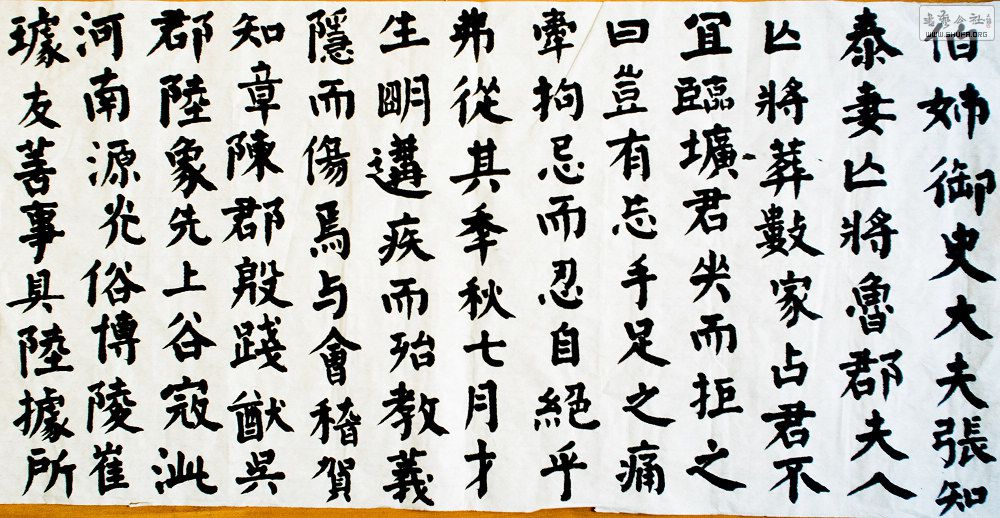 伯姊御史大夫張知
泰妻亡將魯郡夫人
亡將葬數家占君不
宜臨壙君哭而拒之
曰豈有忘手足之痛
牽拘忌而忍自絕乎
弗從其年秋七月才
生明遘疾而殆教義
隱而傷焉与會稽賀
知章陳郡殷踐猷吳
郡陸象先上谷寇泚
河南源光俗博陵崔
璩友善事具陸據所
書藝公社
WWW.SHUFA.ORG